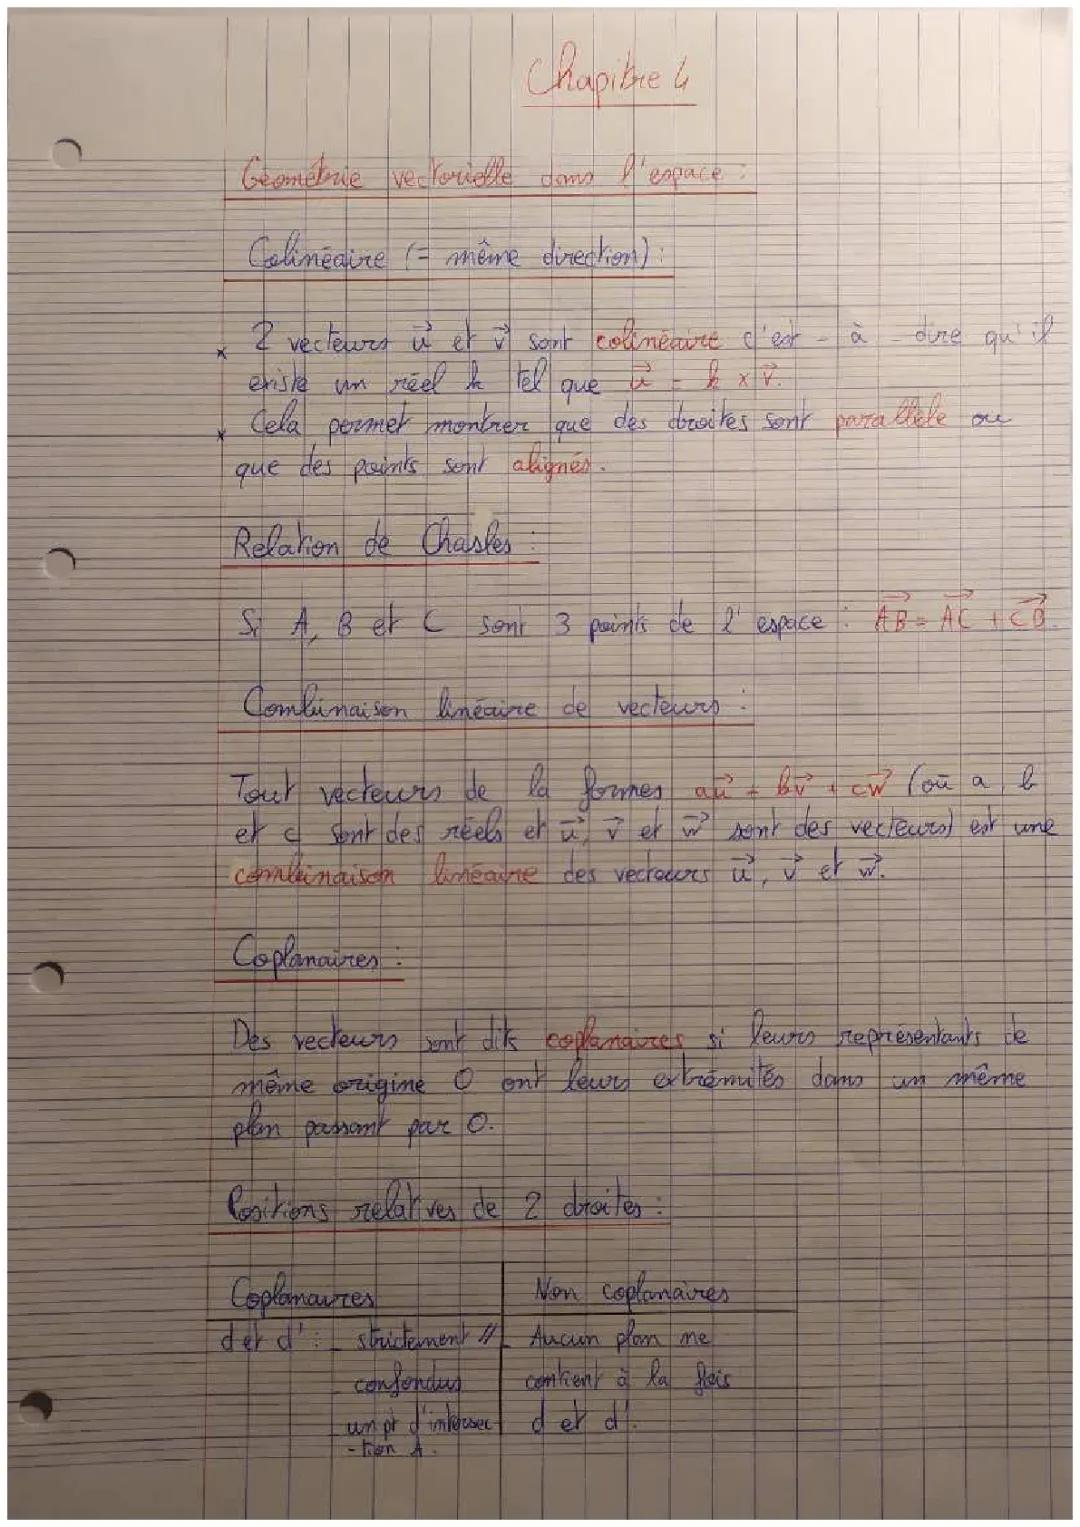 Chapitre 4
Géométrie vectorielle dans l'espace :
Colinéaire (= même direction) :
x 2 vecteurs u⃗ et v⃗ sont colinéaire c'est-à-dire qu'il
existe un réel k tel que u⃗ = k x v⃗.
x Cela permet montrer que des droites sont parallèle ou
que des points sont alignés.
Relation de Chasles :
Si A, B et C sont 3 points de l'espace : AB⃗ = AC⃗ + CB⃗.
Combinaison linéaire de vecteurs :
Tout vecteurs de la formes au⃗ + bv⃗ + cw⃗ (où a, b
et c sont des réels et u⃗, v⃗ et w⃗ sont des vecteurs) est une
combinaison linéaire des vecteurs u⃗, v⃗ et w⃗.
Coplanaires :
Des vecteurs sont dits coplanaires si leurs représentants de
même origine O ont leurs extrémités dans un même
plan passant par O.
Positions relatives de 2 droites :
Coplanaires Non coplanaires
d et d' : - strictement // Aucun plan ne
confondus contient à la fois
un pt d'intersec d et d'.
-tion A.